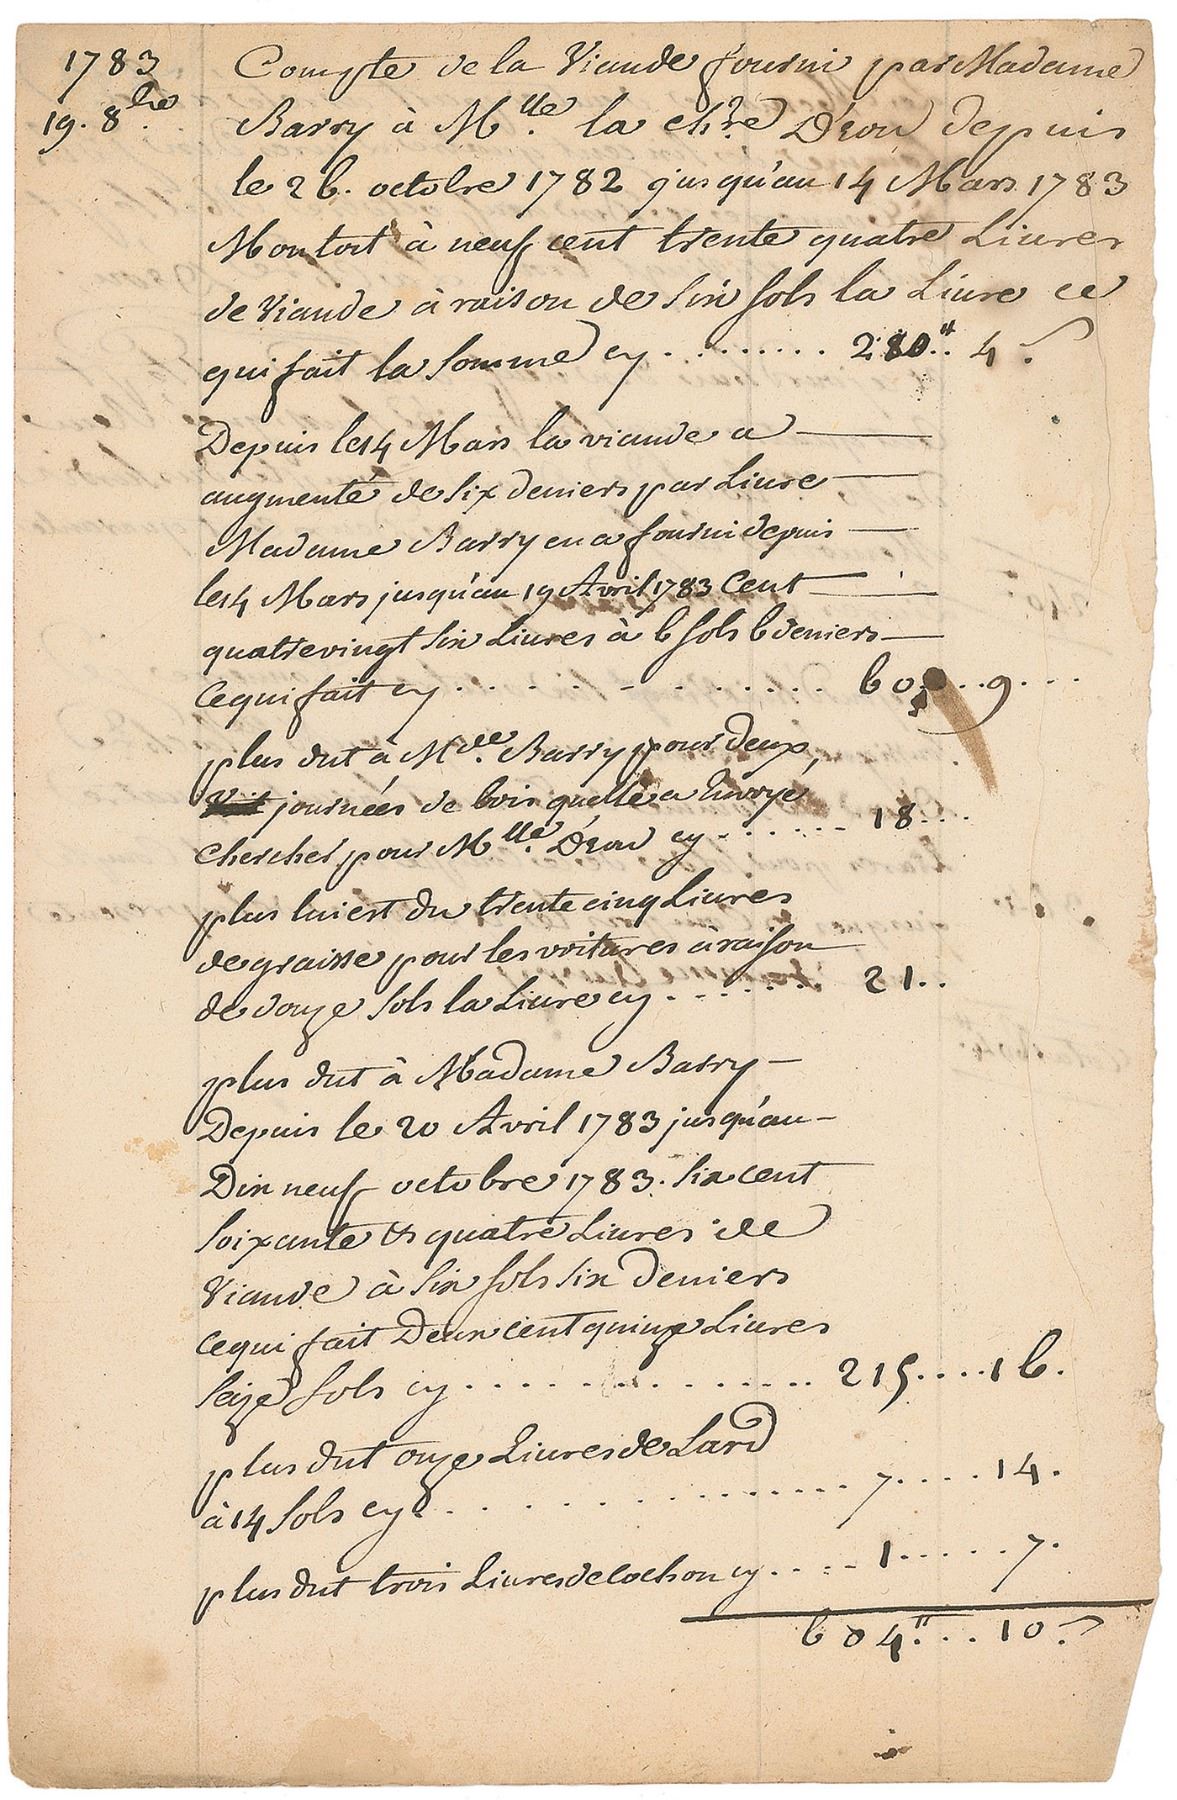 1783
19. 8bre
Compte de la Viande fourni par Madame
Barry à Mlle. la chre D'Eon depuis
le 26. octobre 1782 jusqu'au 14 Mars 1783
Montoit à neuf cent trente quatre Livres
de Viande à raison de six sols la Livre ce
qui fait la somme cy ......... 280# .. 4 s.
Depuis le 14 Mars la viande a —
augmenté de six deniers par Livre —
Madame Barry en a fourni depuis —
le 14 Mars jusqu'au 19 Avril 1783 Cent —
quatrevingt six Livres à 6 sols 6 deniers —
Ce qui fait cy .............. 60 .... 9 ...
plus dut à Mde. Barry pour deux,
journées de bois quelle a Envoyé
chercher pour Mlle. D'Eon cy ....... 18 ...
plus lui est du trente cinq Livres
de graisse pour les voitures à raison
de douze sols la Livre cy ....... 21 ..
plus dut à Madame Barry —
Depuis le 20 Avril 1783 jusqu'au —
Dix neuf octobre 1783. six cent
soixante & quatre Livres de
Viande à six sols six deniers
ce qui fait Deux cent quinze Livres
seize sols cy ............... 215 .... 16.
plus dut onze Livres de Lard
à 14 sols cy ................ 7 .... 14.
plus dut trois Livres de cochon cy .... 1 ..... 7.
604# ... 10 s.